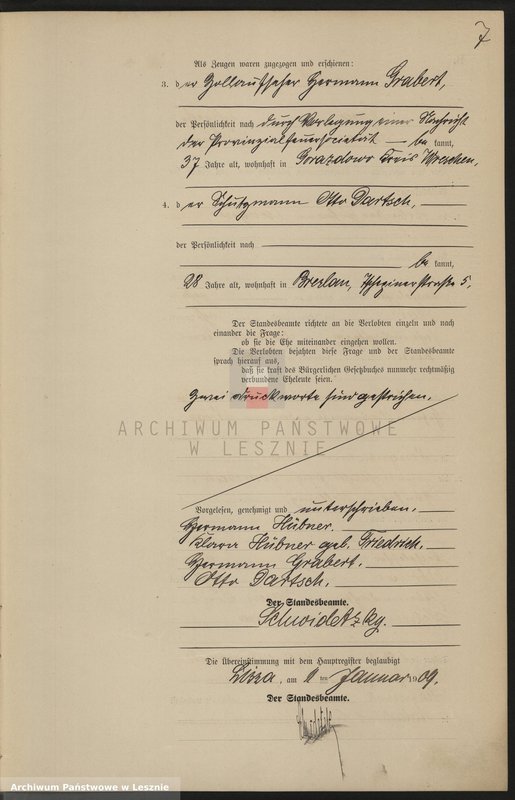 7
Als Zeugen waren zugezogen und erschienen:
3. d er Zollaufseher Hermann Grabert,
der Persönlichkeit nach durch Vorlegung einer Nachricht
der Provinzialfeuersocietät — be kannt,
37 Jahre alt, wohnhaft in Gorazdowo Kreis Wreschen,
4. d er Schutzmann Otto Dartsch,
der Persönlichkeit nach
be kannt,
28 Jahre alt, wohnhaft in Breslau, straße 5.
Der Standesbeamte richtete an die Verlobten einzeln und nach
einander die Frage:
ob sie die Ehe miteinander eingehen wollen.
Die Verlobten bejahten diese Frage und der Standesbeamte
sprach hierauf aus,
daß sie kraft des Bürgerlichen Gesetzbuches nunmehr rechtmäßig
verbundene Eheleute seien.
Zwei Druckworte sind gestrichen.
ARCHIWUM PAŃSTWOWE
W LESZNIE
Vorgelesen, genehmigt und unterschrieben.
Hermann Hübner.
Klara Hübner geb. Friedrich.
Hermann Grabert.
Otto Dartsch.
Der Standesbeamte.
Schwidetzky.
Die Übereinstimmung mit dem Hauptregister beglaubigt
Lissa, am ten Januar 1909.
Der Standesbeamte.
Archiwum Państwowe w Lesznie